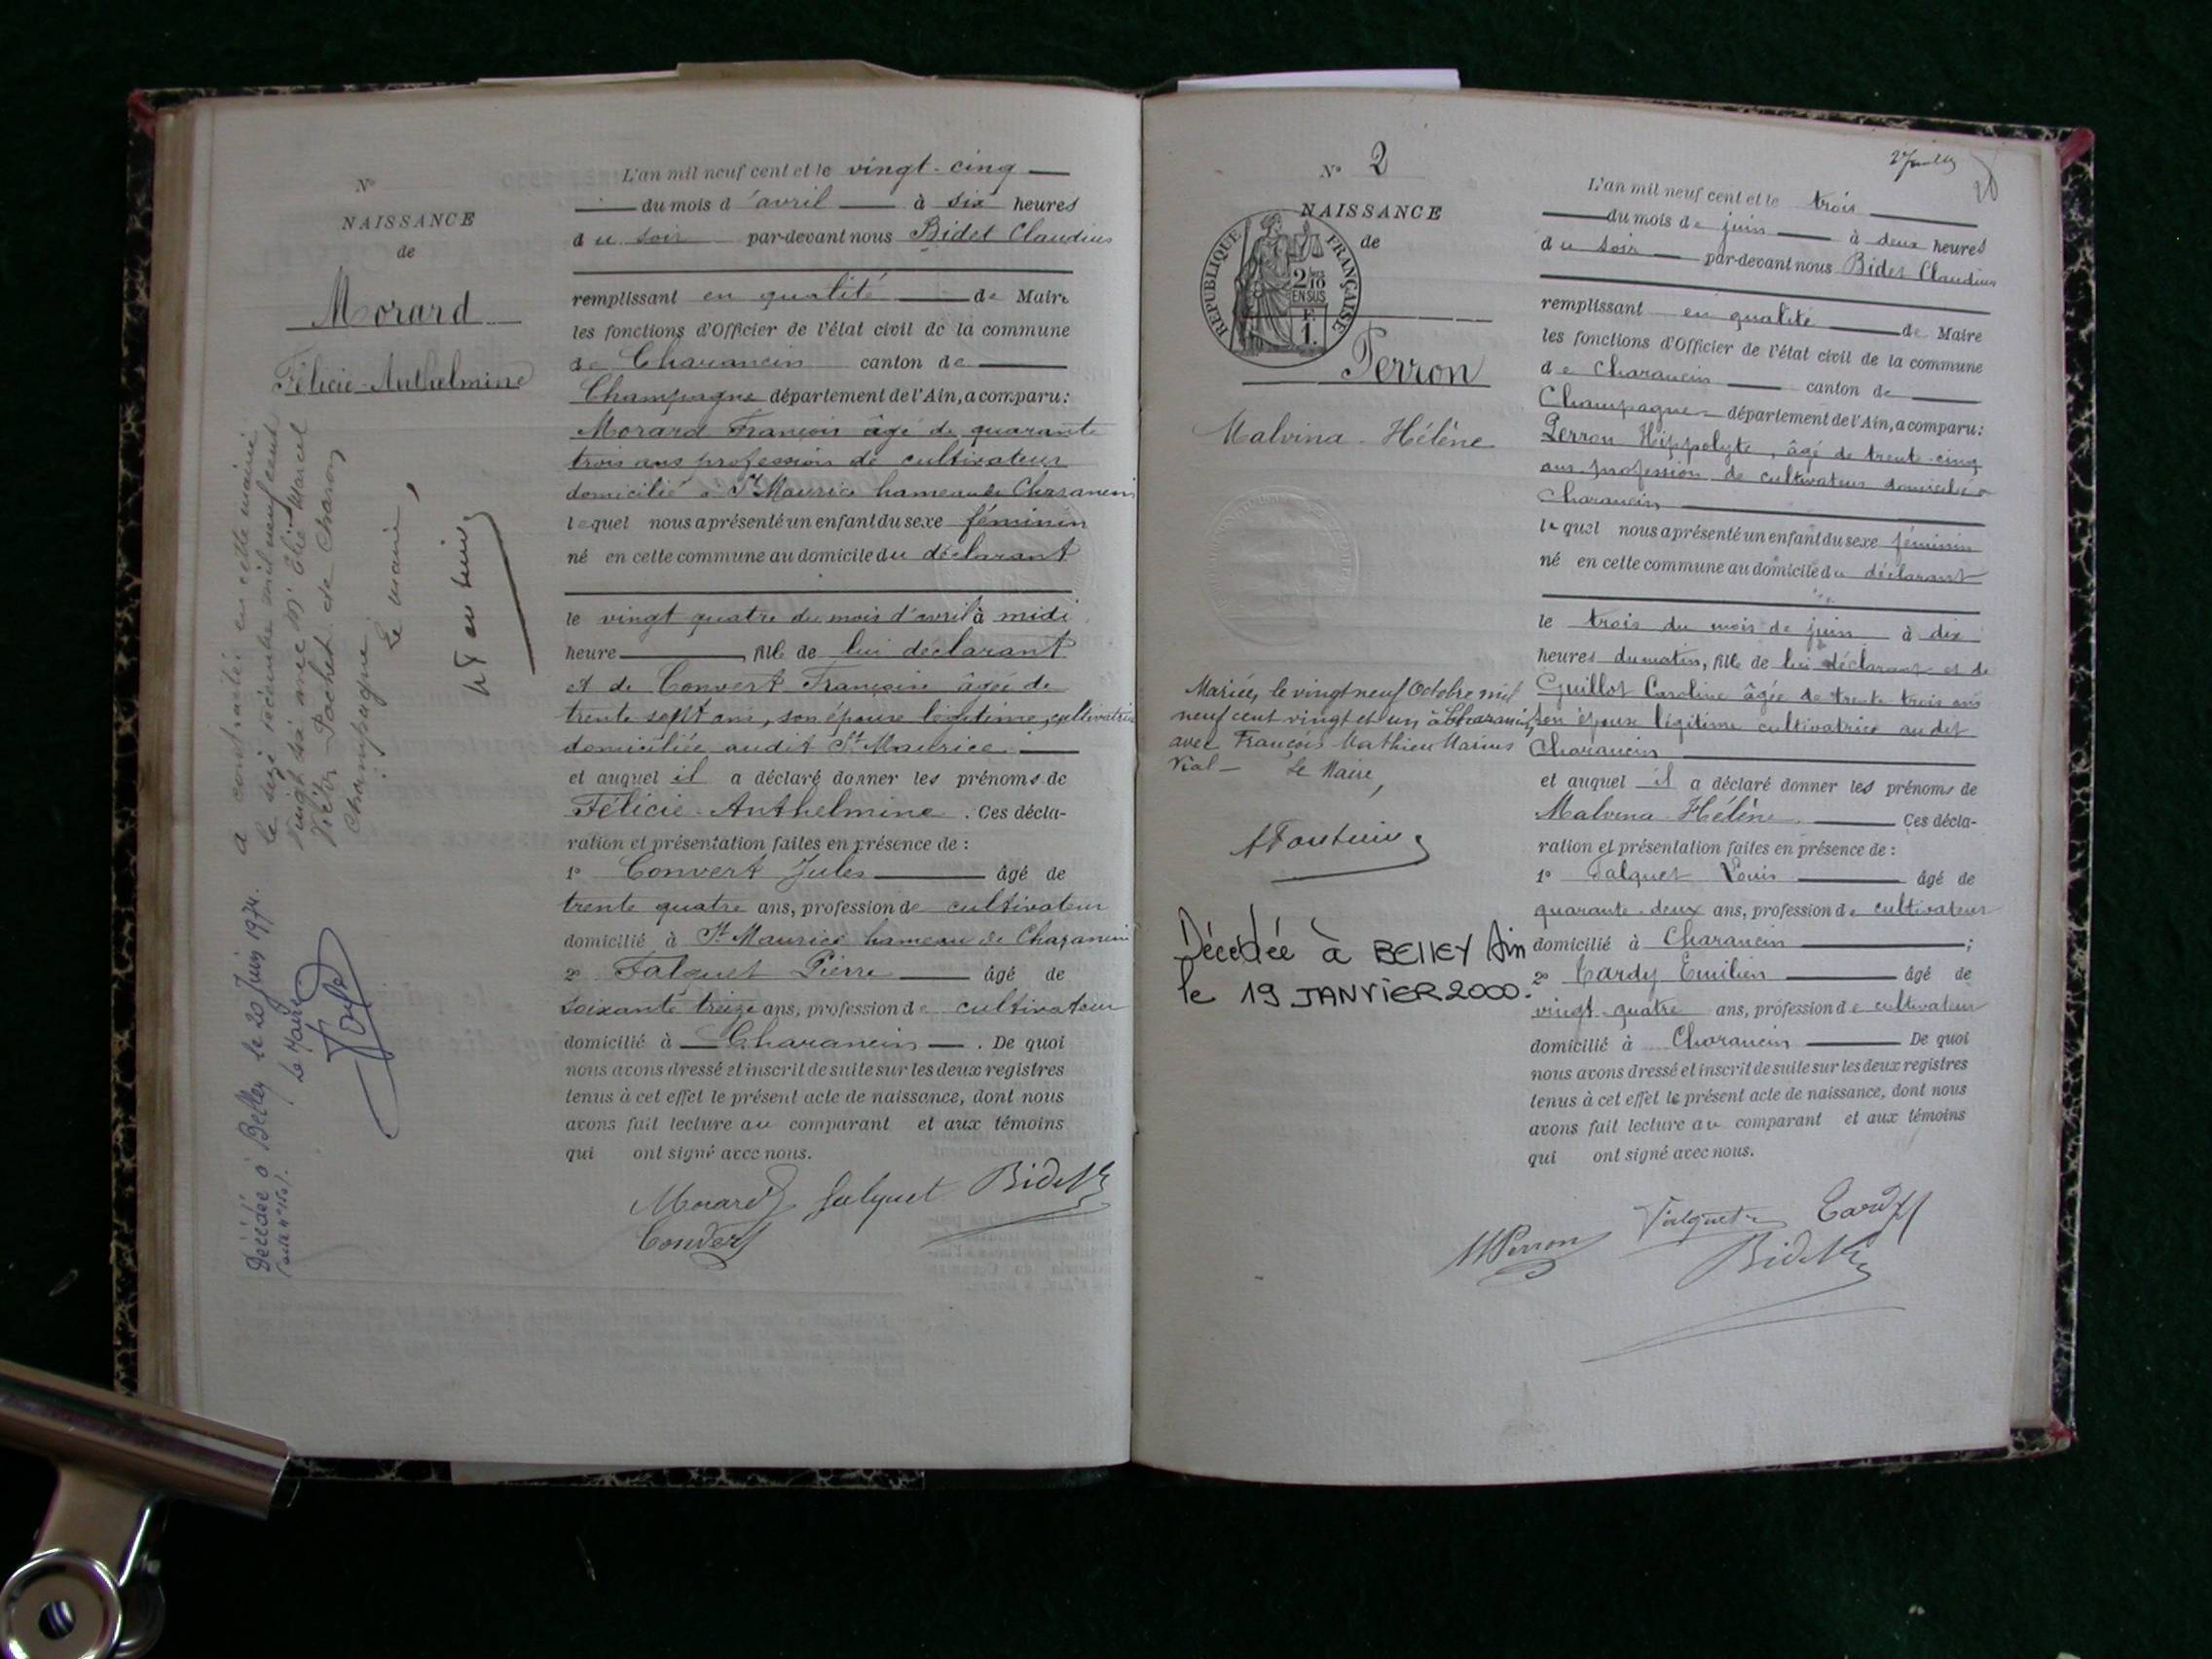 N°
NAISSANCE
de
Morard
Félicie-Anthelmine
a contracté en cette mairie
le seize décembre mil neuf cent
vingt six avec Mr Elie Marcel
Victor Pochet de Charon
Champagne
Le maire,
Décédée à Belley le 20 Juin 1974.
Le Maire
L'an mil neuf cent et le vingt-cinq
du mois d'avril à six heures
du soir par-devant nous Bidet Claudius
remplissant en qualité de Maire
les fonctions d'Officier de l'état civil de la commune
de Charancin canton de
Champagne département de l'Ain, a comparu:
Morard François âgé de quarante
trois ans profession de cultivateur
domicilié à St Maurice hameau de Charancin
lequel nous a présenté un enfant du sexe féminin
né en cette commune au domicile du déclarant
le vingt quatre du mois d'avril à midi
heure , fille de lui déclarant
et de Convert Françoise âgée de
trente sept ans, son épouse légitime, cultivatrice
domiciliée audit St Maurice.
et auquel il a déclaré donner les prénoms de
Félicie-Anthelmine. Ces décla-
ration et présentation faites en présence de :
1° Convert Jules âgé de
trente quatre ans, profession de cultivateur
domicilié à St Maurice hameau de Charancin
2° Falquet Pierre âgé de
soixante treize ans, profession de cultivateur
domicilié à Charancin . De quoi
nous avons dressé et inscrit de suite sur les deux registres
tenus à cet effet le présent acte de naissance, dont nous
avons fait lecture au comparant et aux témoins
qui ont signé avec nous.
Morard Falquet Bidet
Convert
N° 2
NAISSANCE
de
REPUBLIQUE FRANÇAISE
2/10
EN SUS
F.
1.
Perron
Malvina-Hélène
Mariée, le vingt neuf Octobre mil
neuf cent vingt et un, à Charancin,
avec François Mathieu Marius
Vial - Le Maire,
Décédée à BELLEY Ain
le 19 JANVIER 2000.
L'an mil neuf cent et le trois
du mois de juin à deux heures
du soir par-devant nous Bidet Claudius
remplissant en qualité de Maire
les fonctions d'Officier de l'état civil de la commune
de Charancin canton de
Champagne département de l'Ain, a comparu:
Perron Hippolyte, âgé de trente-cinq
ans profession de cultivateur domicilié à
Charancin
lequel nous a présenté un enfant du sexe féminin
né en cette commune au domicile du déclarant
le trois du mois de juin à dix
heures du matin, fille de lui déclarant et de
Guillot Caroline âgée de trente trois ans
son épouse légitime cultivatrice audit
Charancin
et auquel il a déclaré donner les prénoms de
Malvina-Hélène Ces décla-
ration et présentation faites en présence de :
1° Falquet Louis âgé de
quarante-deux ans, profession de cultivateur
domicilié à Charancin ;
2° Tardy Emilien âgé de
vingt-quatre ans, profession de cultivateur
domicilié à Charancin De quoi
nous avons dressé et inscrit de suite sur les deux registres
tenus à cet effet le présent acte de naissance, dont nous
avons fait lecture au comparant et aux témoins
qui ont signé avec nous.
HPerron Falquet Tardy
Bidet